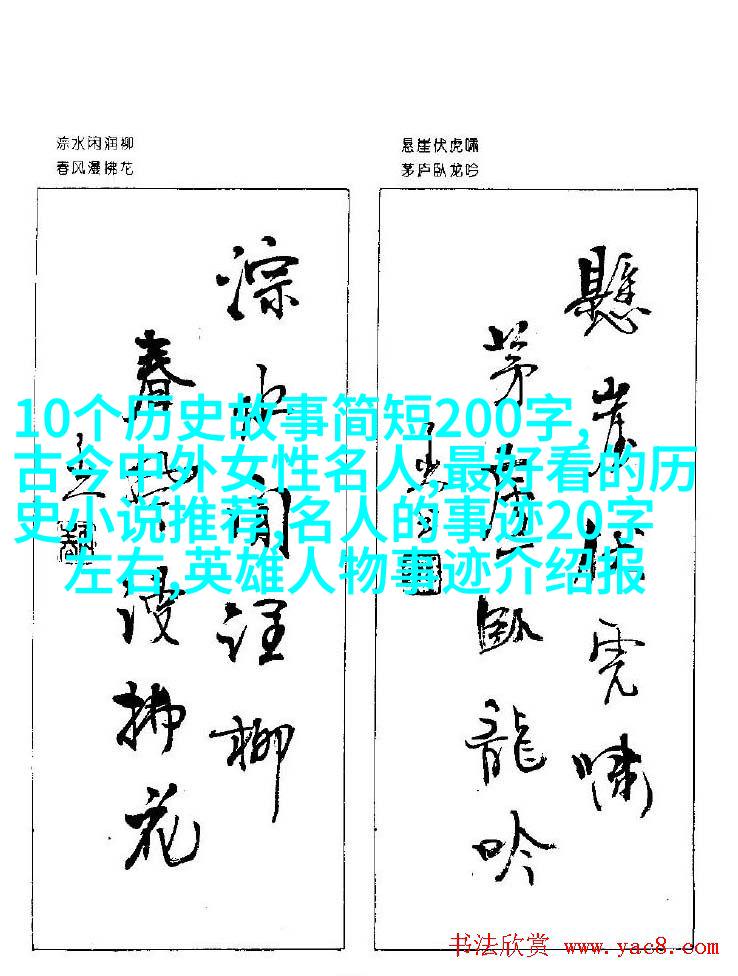 淙水闲润柳
春风漫拂花
悬崖伏虎啸
茅庐卧龙吟
淙水闲润柳
春风漫拂花
懸崖伏虎嘯
茅廬臥龍吟
10个历史故事简短200字,
古今中外女性名人,最好看的历
史小说推荐,名人的事迹20字
左右,英雄人物事迹介绍报
书法欣赏 www.yac8.com